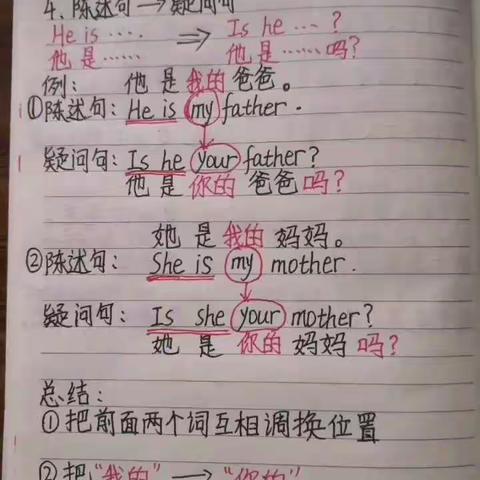 4、陈述句→疑问句
He is ····  ⇒  Is he ···?
他是······  他是······吗?
例: 他是我的爸爸。
①陈述句: He is my father.
疑问句: Is he your father?
他是你的爸爸吗?
她是我的妈妈。
②陈述句: She is my mother.
疑问句: Is she your mother?
她是你的妈妈吗?
总结:
①把前面两个词互相调换位置
②把"我的"→"你的"